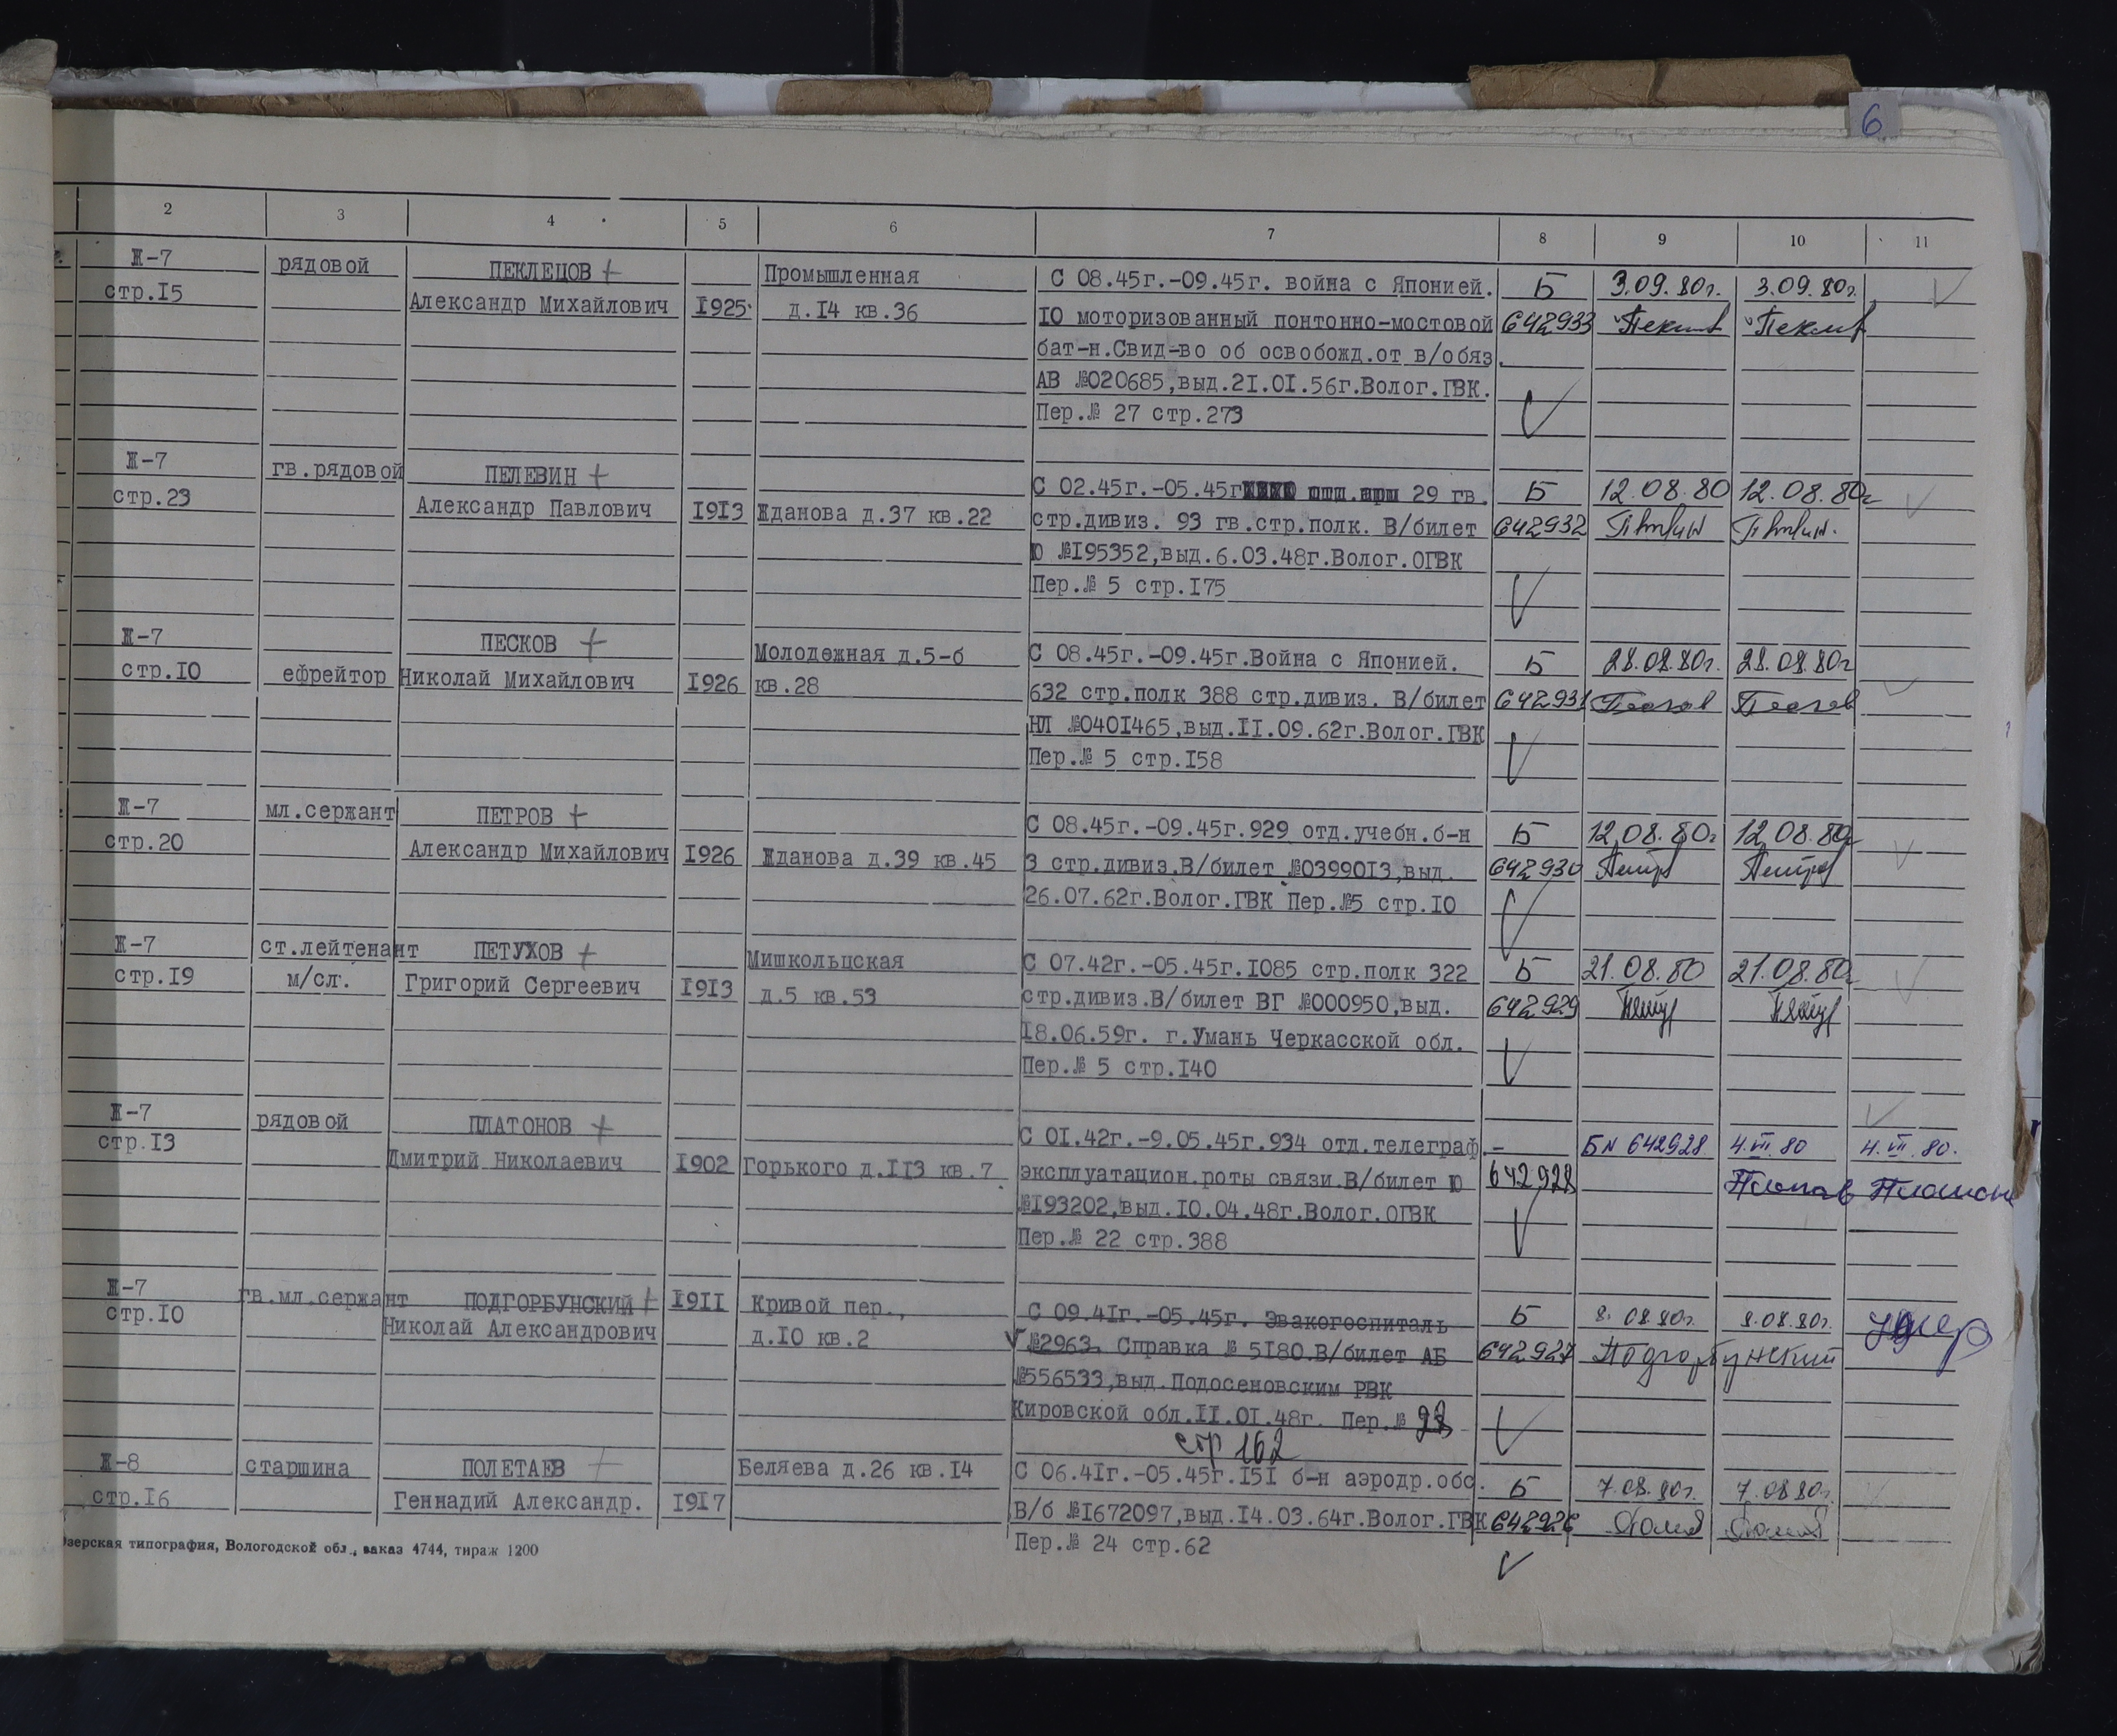 6
2 3 4 5 6 7 8 9 10 11
Ж-7 рядовой ПЕКЛЕЦОВ + Промышленная С 08.45г.-09.45г. война с Японией. Б 3.09.80г. 3.09.80г.
стр.15 Александр Михайлович 1925 д.14 кв.36 10 моторизованный понтонно-мостовой 642933
бат-н.Свид-во об освобожд.от в/обяз.
АВ №020685,выд.21.01.56г.Волог.ГВК.
Пер.№ 27 стр.273
Ж-7 гв.рядовой ПЕЛЕВИН + С 02.45г.-05.45г 29 гв. Б 12.08.80 12.08.80г
стр.23 Александр Павлович 1913 Жданова д.37 кв.22 стр.дивиз. 93 гв.стр.полк. В/билет 642932
Ю №195352,выд.6.03.48г.Волог.ОГВК
Пер.№ 5 стр.175
Ж-7 ПЕСКОВ + Молодежная д.5-б С 08.45г.-09.45г.Война с Японией. Б 28.08.80г. 28.08.80г
стр.10 ефрейтор Николай Михайлович 1926 кв.28 632 стр.полк 388 стр.дивиз. В/билет 642931 Песков Песков
НЛ №0401465,выд.11.09.62г.Волог.ГВК
Пер.№ 5 стр.158
Ж-7 мл.сержант ПЕТРОВ + С 08.45г.-09.45г.929 отд.учебн.б-н Б 12.08.80г 12.08.80г
стр.20 Александр Михайлович 1926 Жданова д.39 кв.45 3 стр.дивиз.В/билет №0399013,выд. 642930
26.07.62г.Волог.ГВК Пер.№5 стр.10
Ж-7 ст.лейтенант ПЕТУХОВ + Мишкольцская С 07.42г.-05.45г.1085 стр.полк 322 Б 21.08.80 21.08.80г
стр.19 м/сл. Григорий Сергеевич 1913 д.5 кв.53 стр.дивиз.В/билет ВГ №000950,выд. 642929
18.06.59г. г.Умань Черкасской обл.
Пер.№ 5 стр.140
Ж-7 рядовой ПЛАТОНОВ + С 01.42г.-9.05.45г.934 отд.телеграф. - БN 642928 4.VIII.80 4.VIII.80.
стр.13 Дмитрий Николаевич 1902 Горького д.113 кв.7. эксплуатацион.роты связи.В/билет Ю 642928
№193202,выд.10.04.48г.Волог.ОГВК
Пер.№ 22 стр.388
Ж-7 гв.мл.сержант ПОДГОРБУНСКИЙ + 1911 Кривой пер., С 09.41г.-05.45г. Эвакогоспиталь Б 8.08.80г. 8.08.80г. умер
стр.10 Николай Александрович д.10 кв.2 №2963. Справка № 5180.В/билет АБ 642927 Подгорбунский
№556533,выд.Подосеновским РВК
Кировской обл.11.01.48г. Пер.№
стр 162
Ж-8 старшина ПОЛЕТАЕВ + Беляева д.26 кв.14 С 06.41г.-05.45г.151 б-н аэродр.обс. Б 7.08.80г. 7.08.80г.
стр.16 Геннадий Александр. 1917 В/б №1672097,выд.14.03.64г.Волог.ГВК 642926
Пер.№ 24 стр.62
зерская типография, Вологодской обл., заказ 4744, тираж 1200